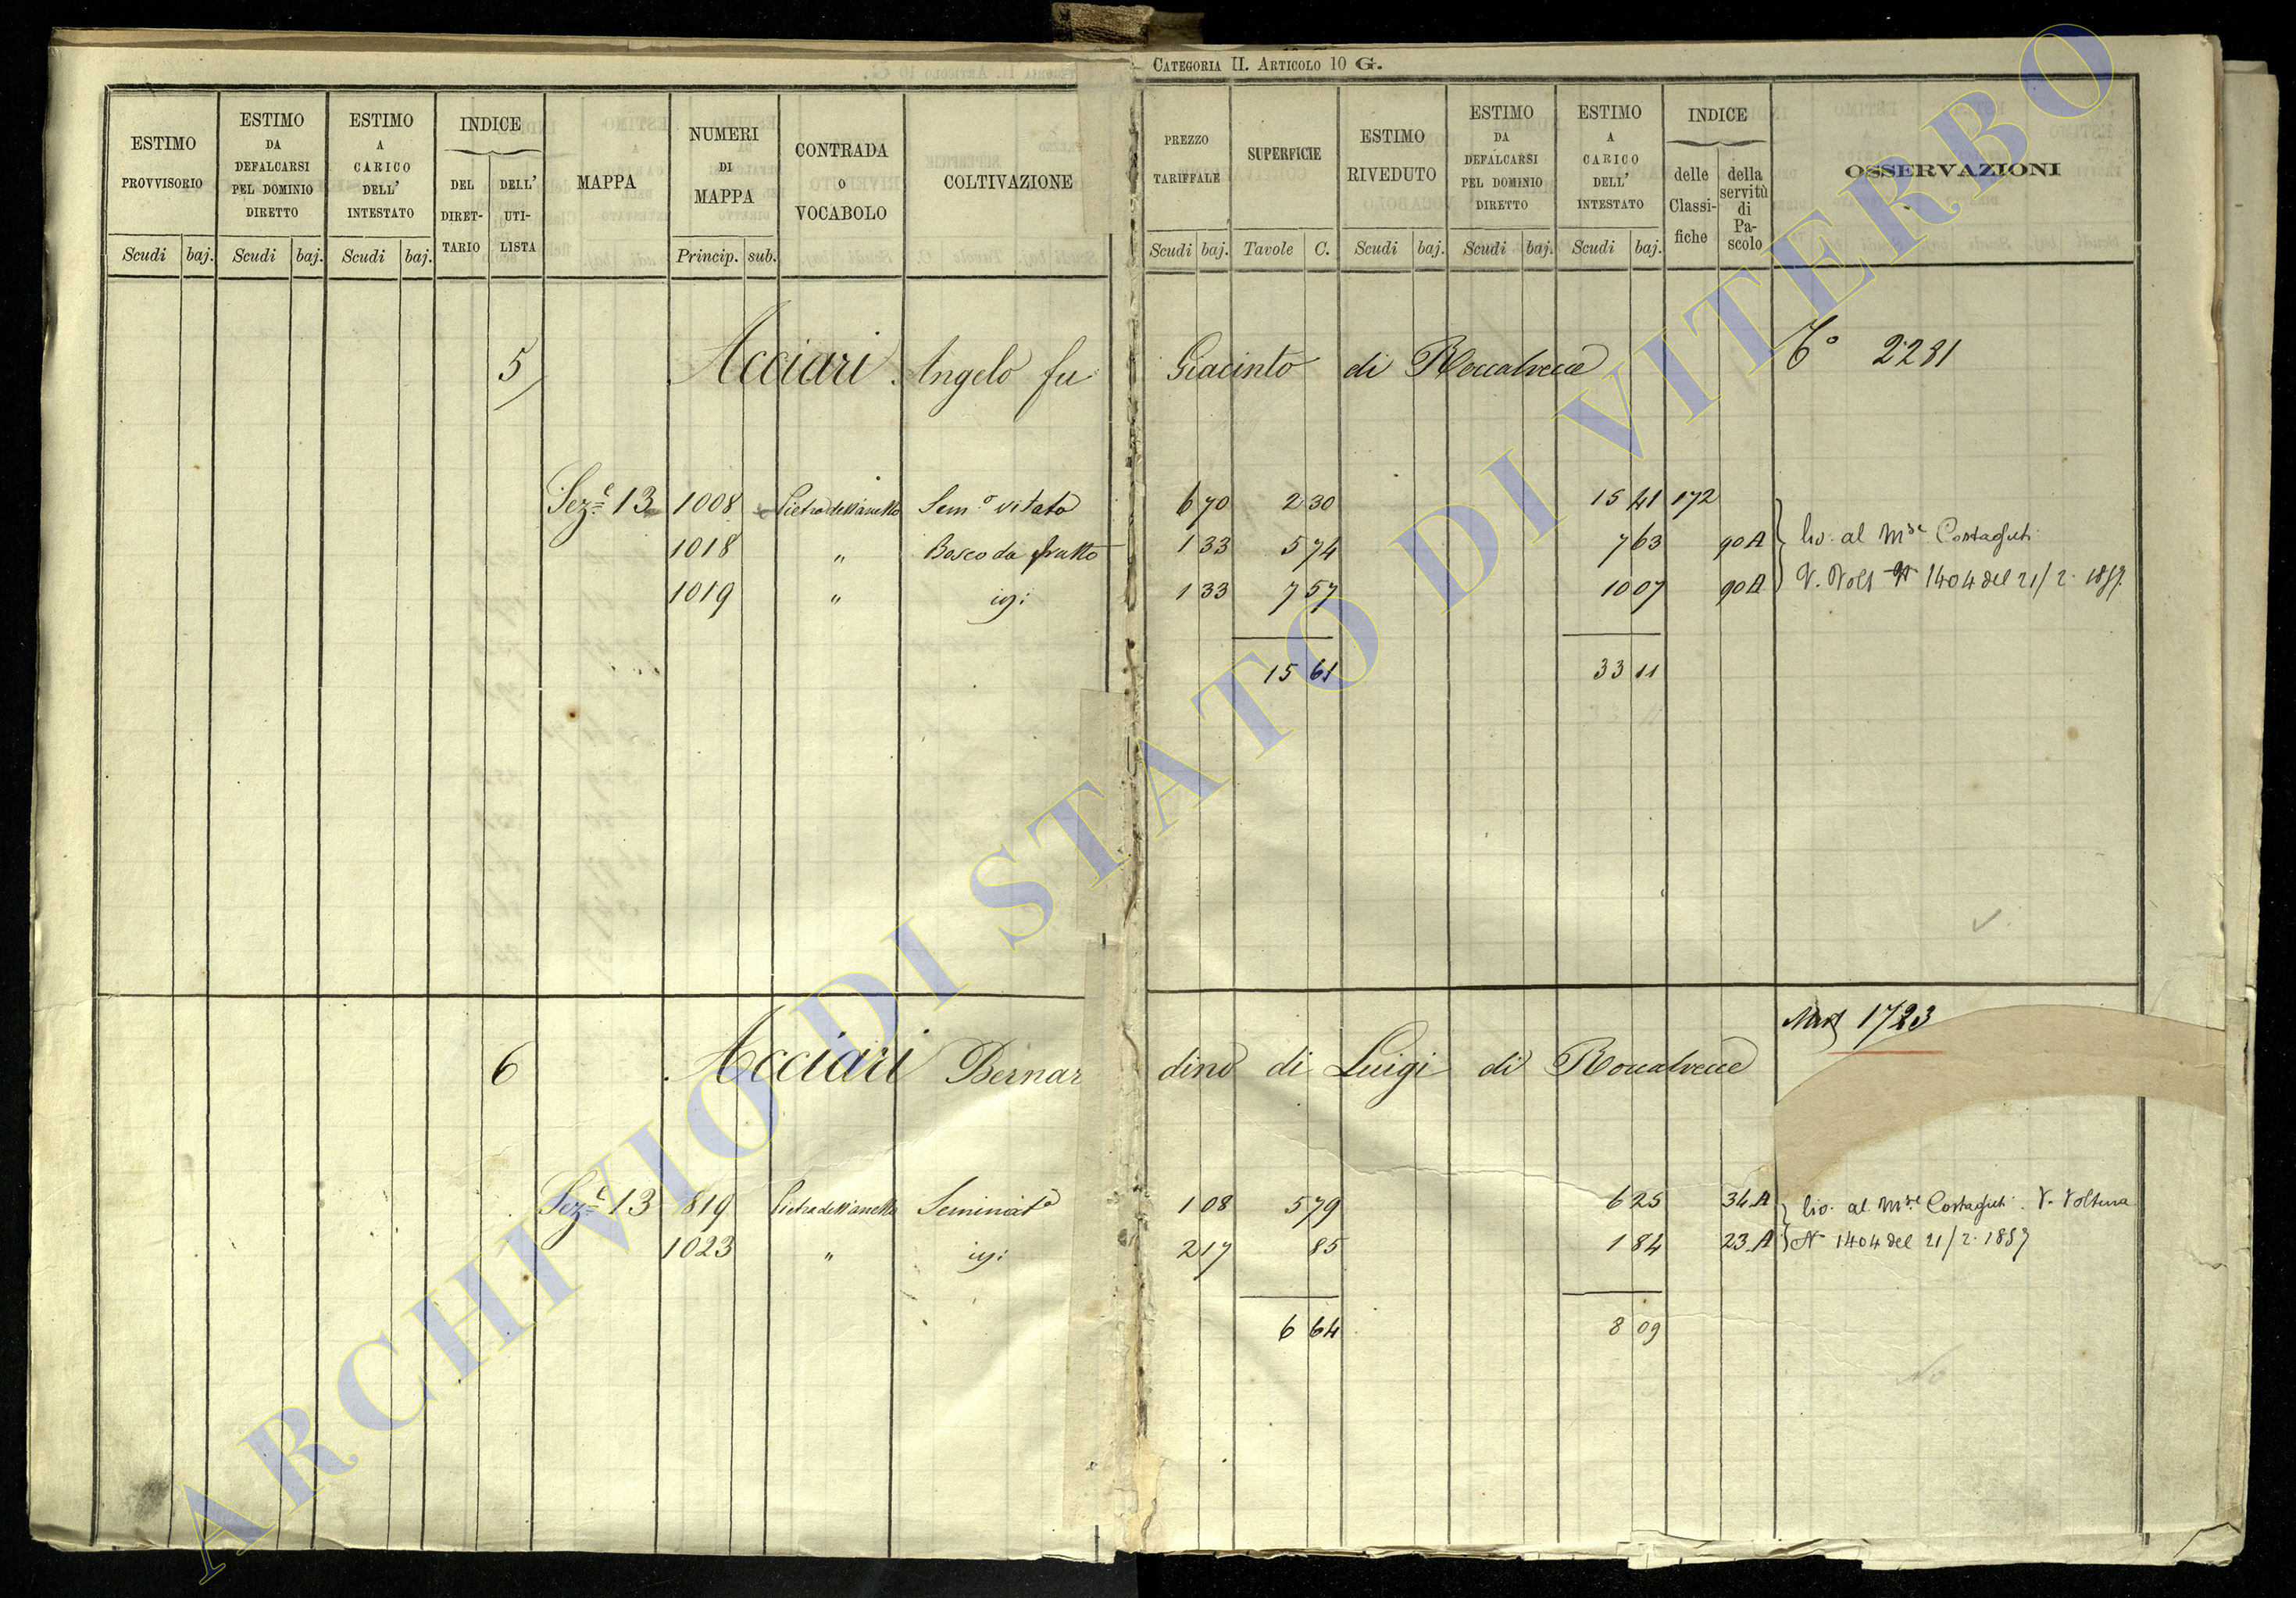 CATEGORIA II. ARTICOLO 10 G.
ESTIMO PROVVISORIO Scudi baj.
ESTIMO DA DEFALCARSI PEL DOMINIO DIRETTO Scudi baj.
ESTIMO A CARICO DELL' INTESTATO Scudi baj.
INDICE DEL DIRET-TARIO DELL' UTI-LISTA
MAPPA
NUMERI DI MAPPA Princip. sub.
CONTRADA O VOCABOLO
COLTIVAZIONE
PREZZO TARIFFALE Scudi baj.
SUPERFICIE Tavole C.
ESTIMO RIVEDUTO Scudi baj.
ESTIMO DA DEFALCARSI PEL DOMINIO DIRETTO Scudi baj.
ESTIMO A CARICO DELL' INTESTATO Scudi baj.
INDICE delle Classi-fiche della servitù di Pa-scolo
OSSERVAZIONI
5 Acciari Angelo fu Giacinto di Roccalvecce 2231
Sez.e 13 1008 Pietra dell'anello Sem.o vitato 6 70 2 30 15 41 172
1018 " Bosco da frutto 1 33 5 74 7 63 90A liv. al M.se Costaguti
1019 " igi: 1 33 7 57 10 07 90A V. Volt N 1404 del 21/2. 1857.
15 61 33 11
1723
6 Acciari Bernardino di Luigi di Roccalvecce
Sez.e 13 819 Pietra dell'anello Seminat.o 1 08 5 79 6 25 34A liv. al M.se Costaguti. V. Voltura
1023 " igi: 2 17 85 1 84 23A N 1404 del 21/2. 1857
6 64 8 09
No
ARCHIVIO DI STATO DI VITERBO